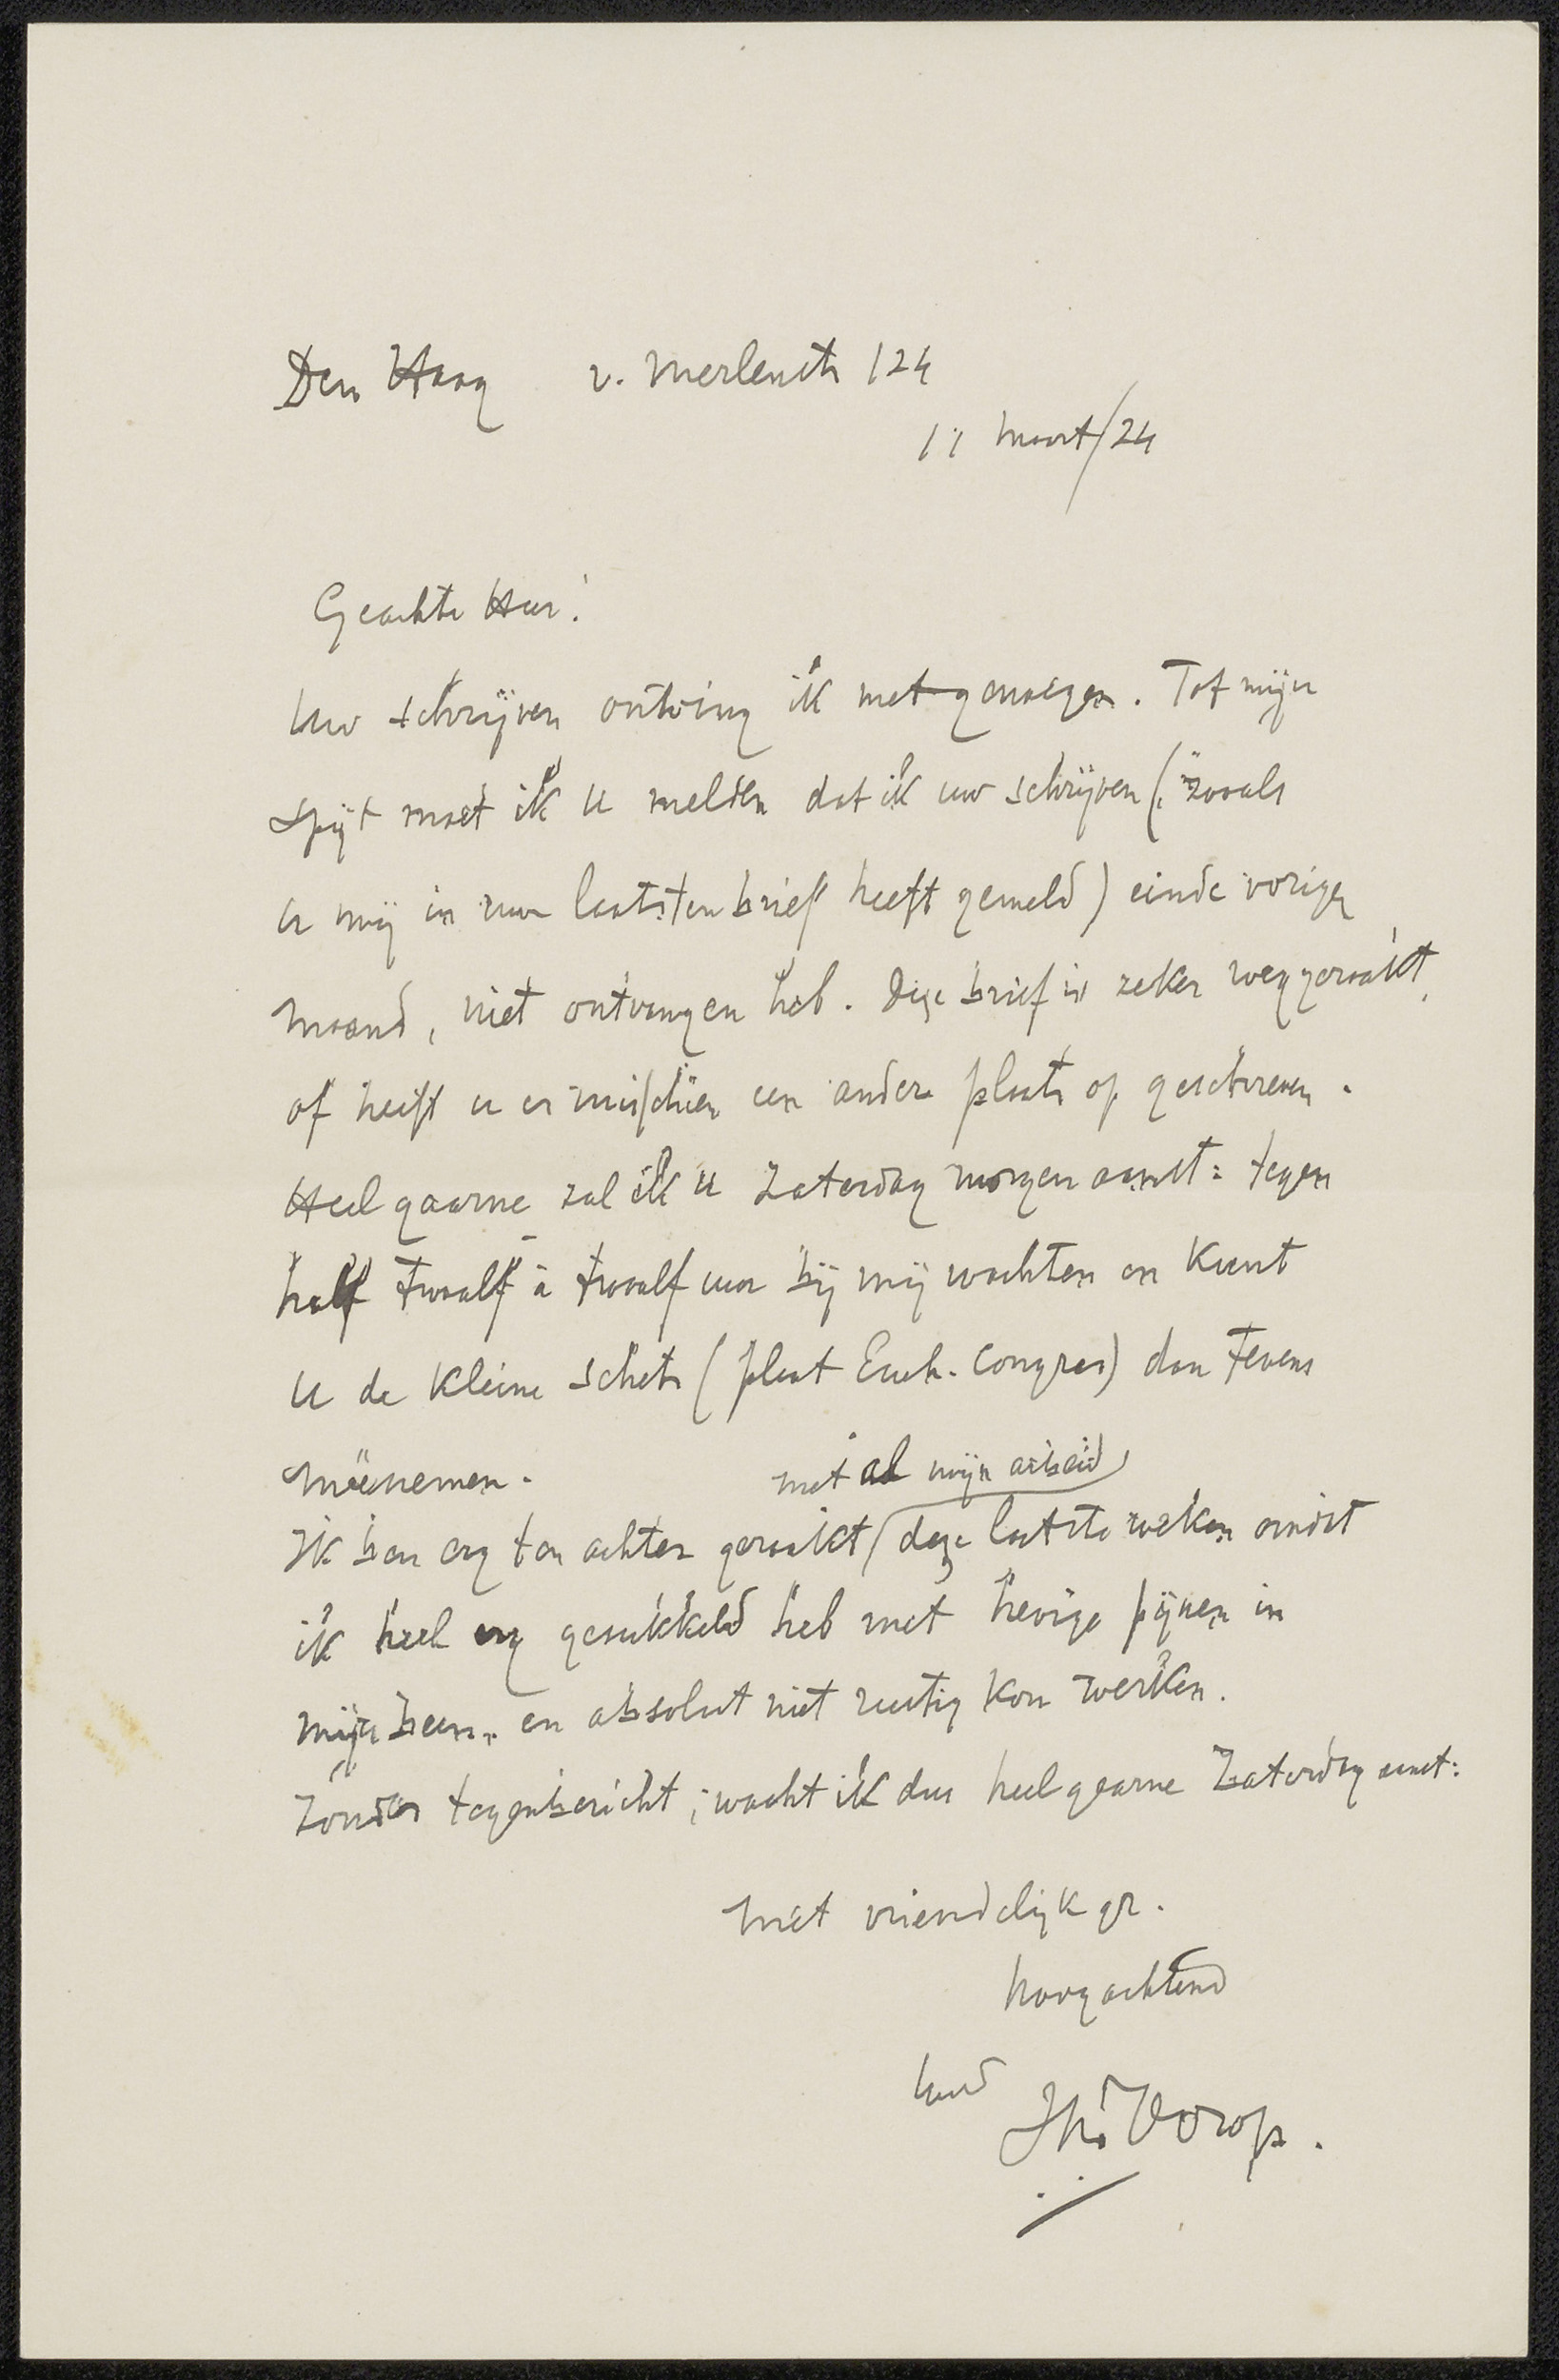 Den Haag v. Merlenstr 124
11 Maart/24
Geachte Heer!
Uw schrijven ontving ik met genoegen. Tot mijn
spijt moet ik u melden dat ik uw schrijven (zooals
u mij in uw laatsten brief heeft gemeld) einde vorige
maand, niet ontvangen heb. Deze brief is zeker weggeraakt,
of heeft u er misschien een andere plaats op geschreven.
Heel gaarne zal ik u Zaterdag morgen aanst: tegen
half twaalf à twaalf uur bij mij wachten en kunt
u de kleine schets (plaat Euch. Congres) dan tevens
meênemen.
met al mijn arbeid
Ik ben erg ten achter geraakt deze laatste weken omdat
ik heel erg gesukkeld heb met hevige pijnen in
mijn been en absoluut niet rustig kon werken.
Zonder tegenbericht, wacht ik dus heel gaarne Zaterdag aanst:
Met vriendelijk gr.
hoogachtend
Uwd
JhToorop.